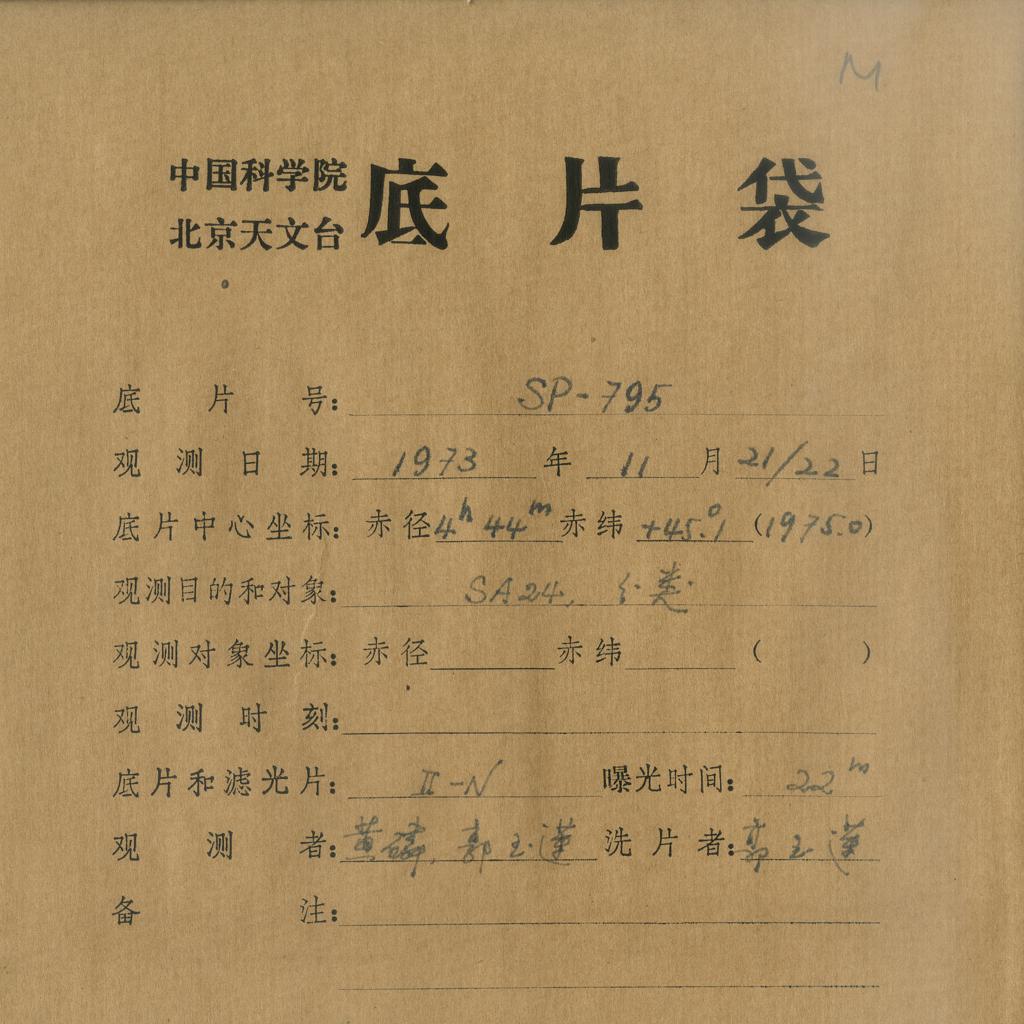 M
中国科学院
北京天文台
底片袋
底片号: SP-795
观测日期: 1973 年 11 月 21/22 日
底片中心坐标: 赤径 4h 44m 赤纬 +45.°1 (1975.0)
观测目的和对象: SA24, 分类
观测对象坐标: 赤径 赤纬 ( )
观测时刻:
底片和滤光片: II-N 曝光时间: 22m
观测者: 黄磷, 郭玉 洗片者: 郭玉
备注: